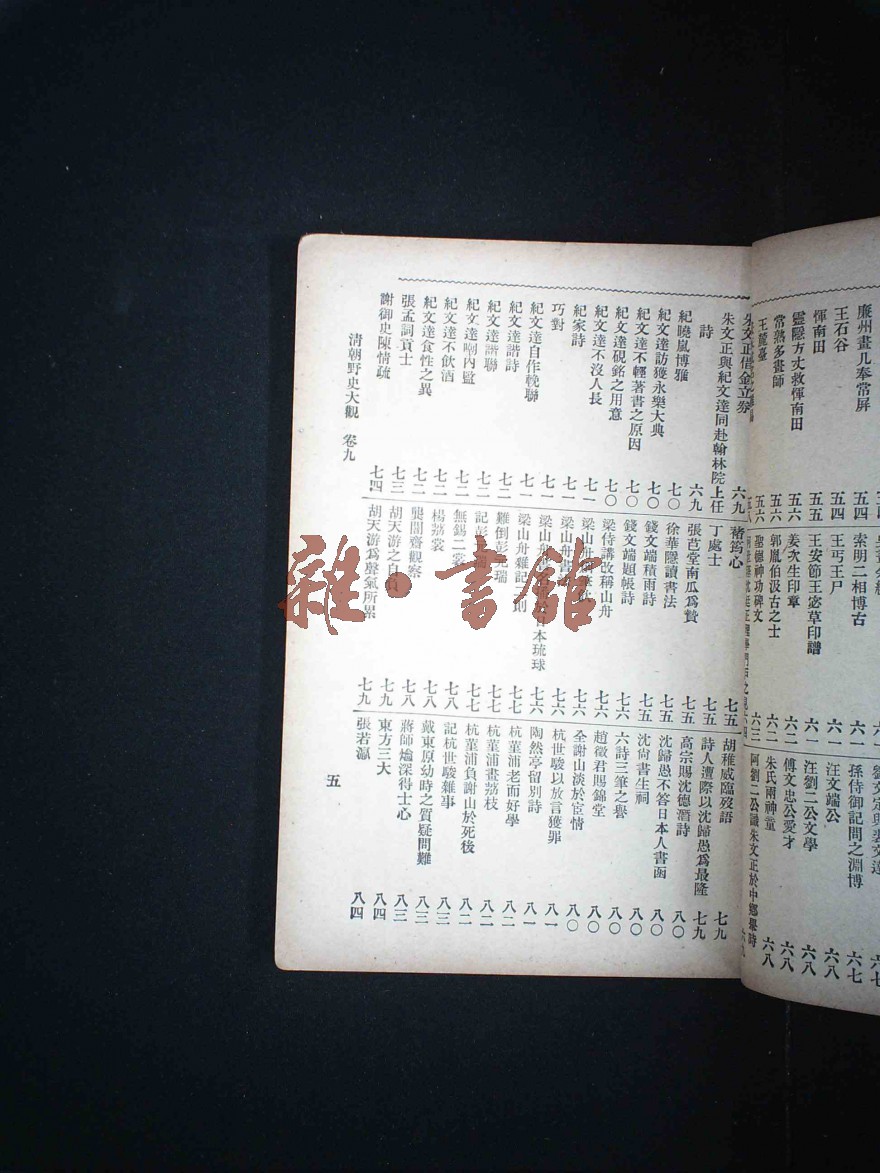 廉州畫几奉常屏
王石谷 五四
惲南田 五五
靈隱方丈救惲南田 五六
常熟多畫師 五六
王麓臺
索明二相博古 六一
王丐王尸 六一
王安節王宓草印譜 六一
姜次生印章 六二
郭胤伯汲古之士 六二
聖德神功碑文 六三
孫侍御記問之淵博 六七
汪文端公 六八
汪劉二公文學 六八
傅文忠公愛才 六八
朱氏兩神童 六八
阿劉二公識朱文正於中鄉舉時
朱文正借金立券 六九
朱文正與紀文達同赴翰林院上任
詩 六九
紀曉嵐博雅 七〇
紀文達訪獲永樂大典 七〇
紀文達不輕著書之原因 七〇
紀文達硯銘之用意 七〇
紀文達不沒人長 七一
紀家詩 七一
巧對 七一
紀文達自作輓聯 七一
紀文達諧詩 七二
紀文達諧聯 七二
紀文達嘲內監 七二
紀文達不飲酒 七二
紀文達食性之異 七二
張孟詞貢士 七三
謝御史陳情疏 七四
褚筠心 七五
丁處士 七五
張芭堂南瓜爲贄 七五
徐華隱讀書法 七五
錢文端積雨詩 七五
錢文端題帳詩 七六
梁侍講改稱山舟 七六
梁山舟
梁山舟書
梁山舟 日本琉球 七六
梁山舟雜記二則 七七
難倒彭元瑞 七七
記彭 瑞 七七
無錫二裘 七八
楊荔裳 七八
龔闇齋觀察 七八
胡天游之自負 七九
胡天游爲聲氣所累 七九
胡稚威臨歿語 七九
詩人遭際以沈歸愚爲最隆 七九
高宗賜沈德潛詩 八〇
沈歸愚不答日本人書函 八〇
沈尙書生祠 八〇
六詩三筆之譽 八〇
趙徵君賜錦堂 八〇
全謝山淡於宦情 八〇
杭世駿以放言獲罪 八一
陶然亭留別詩 八一
杭菫浦老而好學 八二
杭菫浦畫荔枝 八二
杭菫浦負謝山於死後 八二
記杭世駿雜事 八三
戴東原幼時之質疑問難 八三
蔣師爚深得士心 八三
東方三大 八四
張若瀛 八四
清朝野史大觀 卷九
五
雜·書館